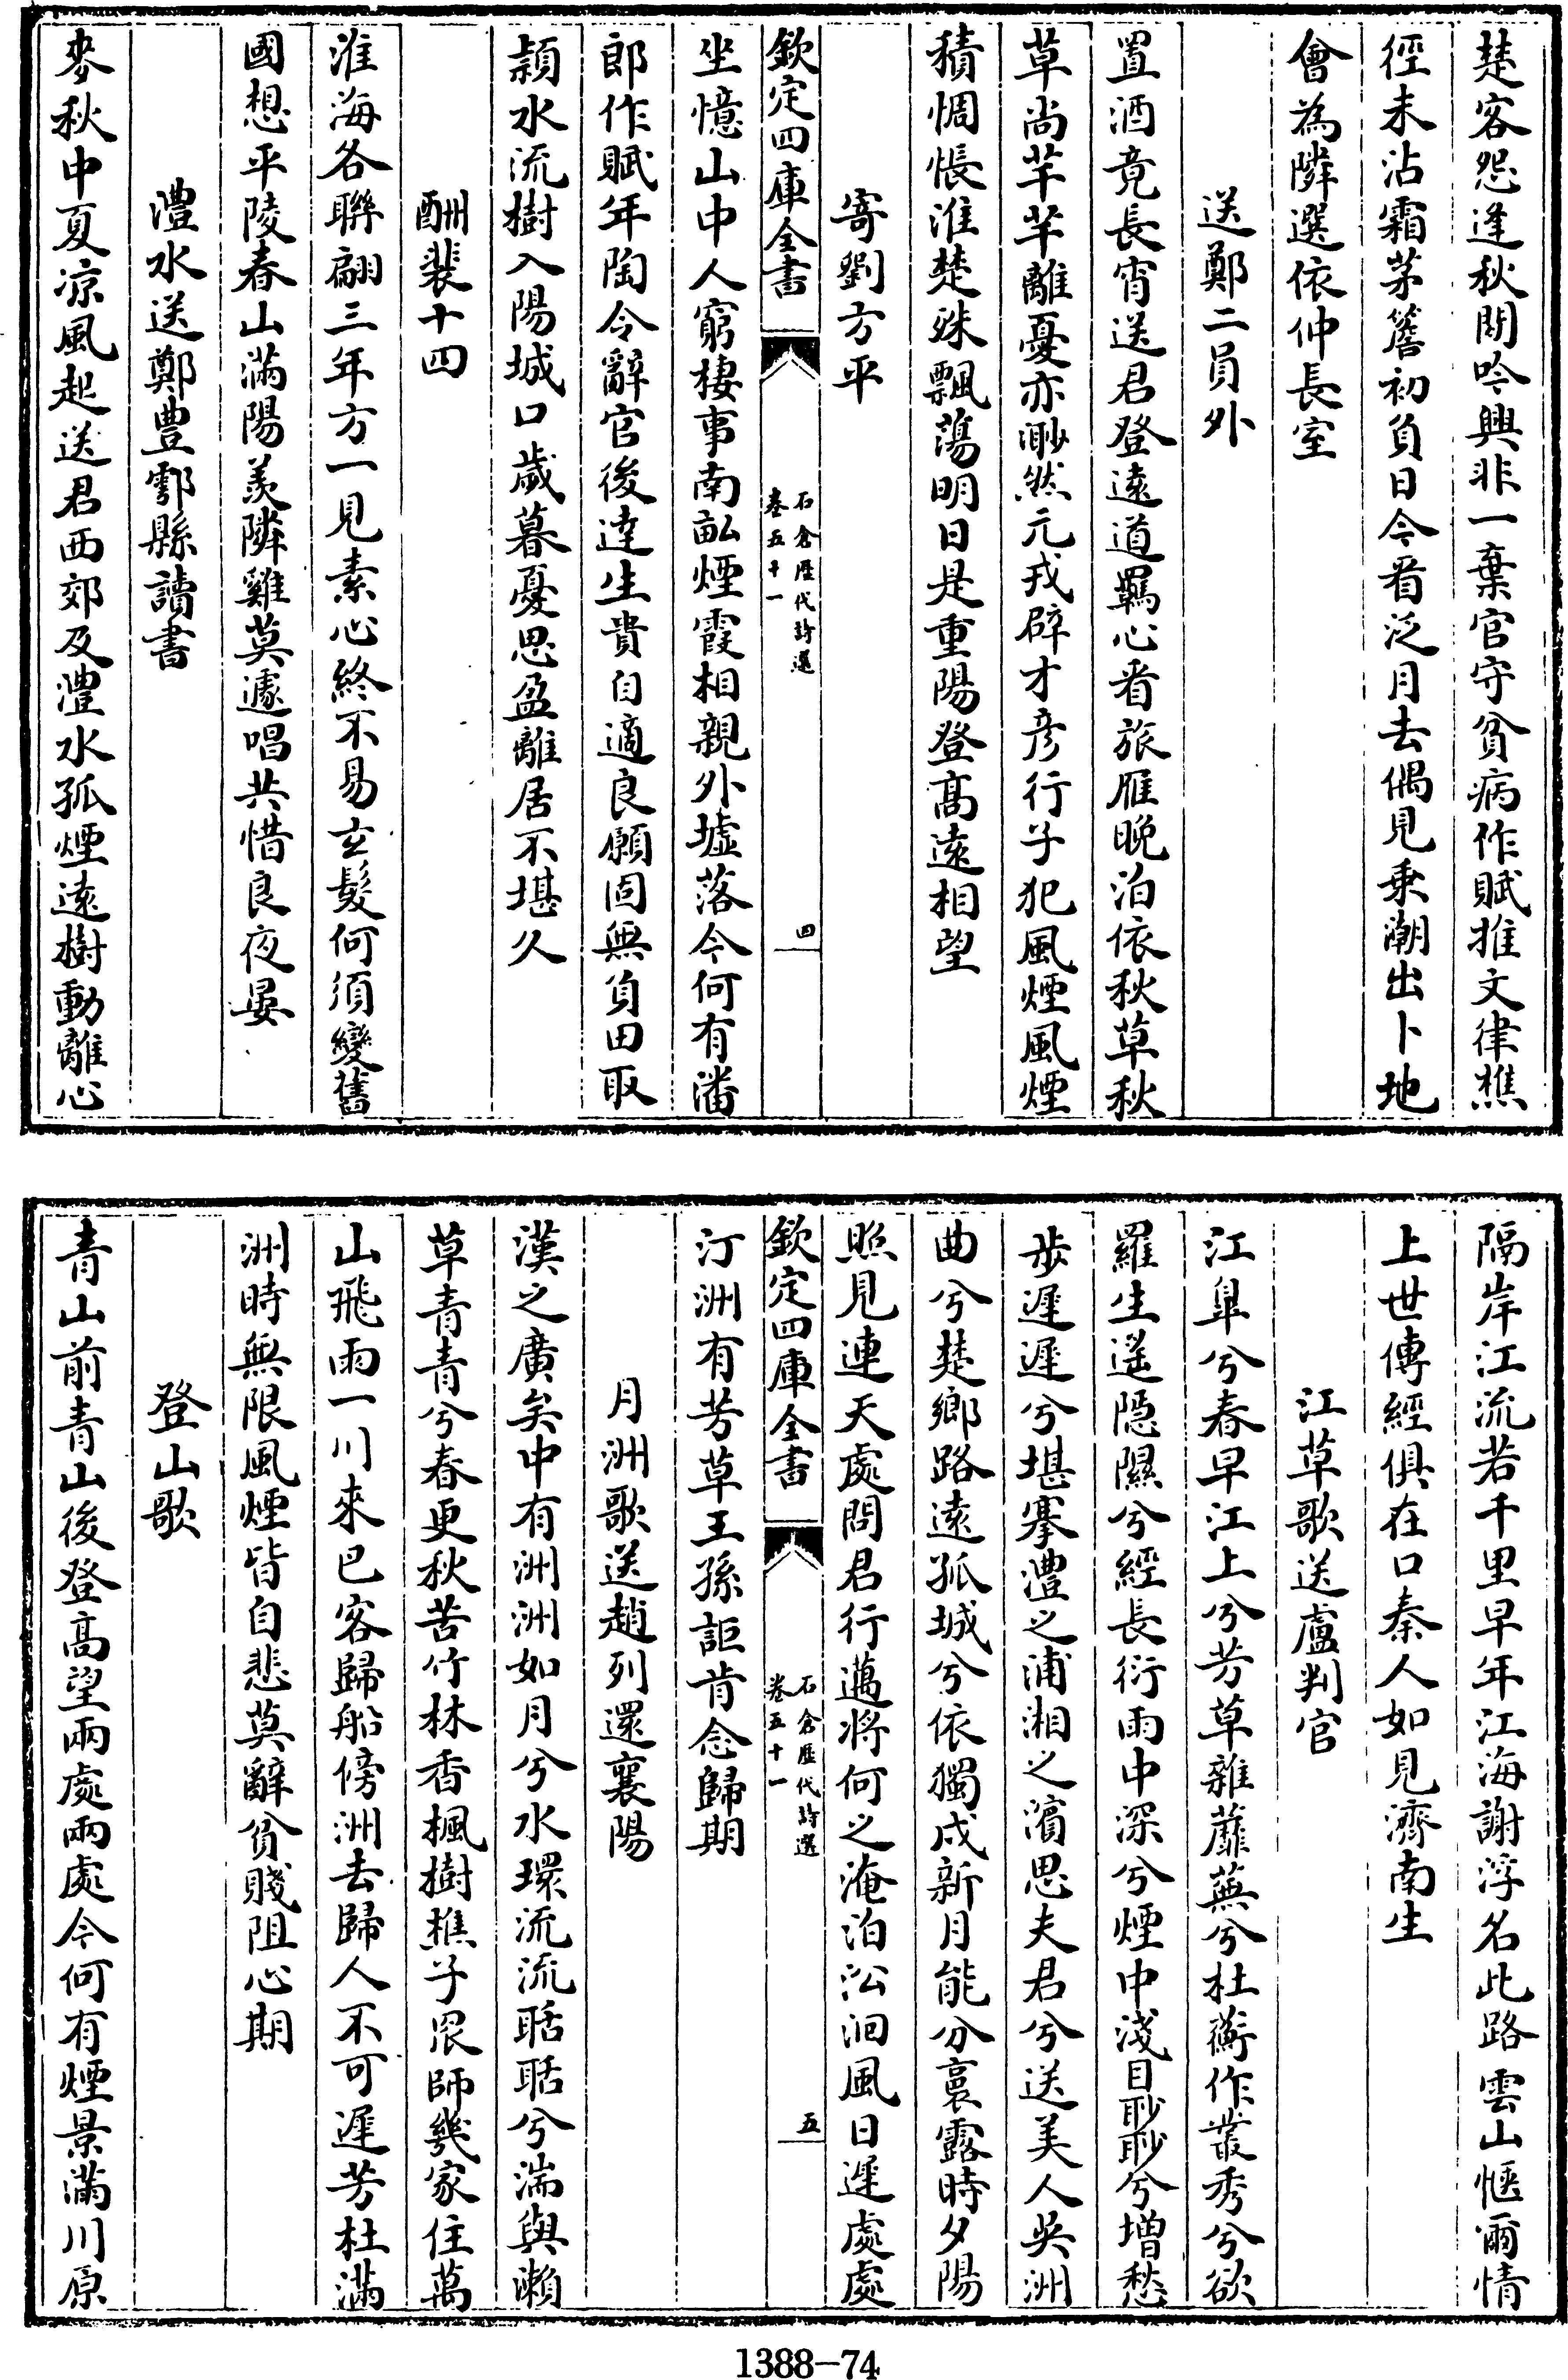 楚客怨逢秋閒吟興非一棄官守貧病作賦推文律樵
徑未沾霜茅簷初負日今看泛月去偶見乘潮出卜地
會為隣選依仲長室
送鄭二員外
置酒竟長宵送君登遠道羈心看旅雁晚泊依秋草秋
草尚芊芊離憂亦渺然元戎辟才彦行子犯風煙風煙
積惆悵淮楚殊飄蕩明日是重陽登髙遠相望
寄劉方平
欽定四庫全書
石倉歴代詩選
卷五十一
四
坐憶山中人窮棲事南畝煙霞相親外墟落今何有潘
郎作賦年陶令辭官後達生貴自適良願固無負田取
潁水流樹入陽城口歲暮憂思盈離居不堪久
酬裴十四
淮海各聯翩三年方一見素心終不易玄髮何須變舊
國想平陵春山滿陽羨隣雞莫遽唱共惜良夜晏
灃水送鄭豊鄠縣讀書
麥秋中夏涼風起送君西郊及灃水孤煙遠樹動離心
隔岸江流若千里早年江海謝浮名此路雲山愜爾情
上世傳經俱在口秦人如見濟南生
江草歌送盧判官
江臯兮春早江上兮芳草雜蘼蕪兮杜蘅作叢秀兮欲
羅生遥隠隰兮經長衍雨中深兮煙中淺目眇眇兮增愁
步遲遲兮堪搴灃之浦湘之濱思夫君兮送美人吳洲
曲兮楚鄉路遠孤城兮依獨戍新月能分裛露時夕陽
照見連天處問君行邁將何之淹泊㳂洄風日遲處處
欽定四庫全書
石倉歴代詩選
卷五十一
五
汀洲有芳草王孫詎肯念歸期
月洲歌送趙列還襄陽
漢之廣矣中有洲洲如月兮水環流流聒聒兮湍與瀨
草青青兮春更秋苦竹林香楓樹樵子罛師幾家住萬
山飛雨一川來巴客歸船傍洲去歸人不可遲芳杜滿
洲時無限風煙皆自悲莫辭貧賤阻心期
登山歌
青山前青山後登髙望兩處兩處今何有煙景滿川原
1388-74